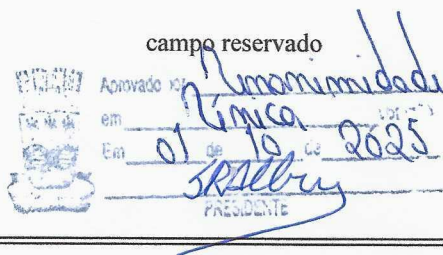 campo reservado
Aprovado por Unanimidade
em Única votação
Em 01 de 10 de 2025
PRESIDENTE